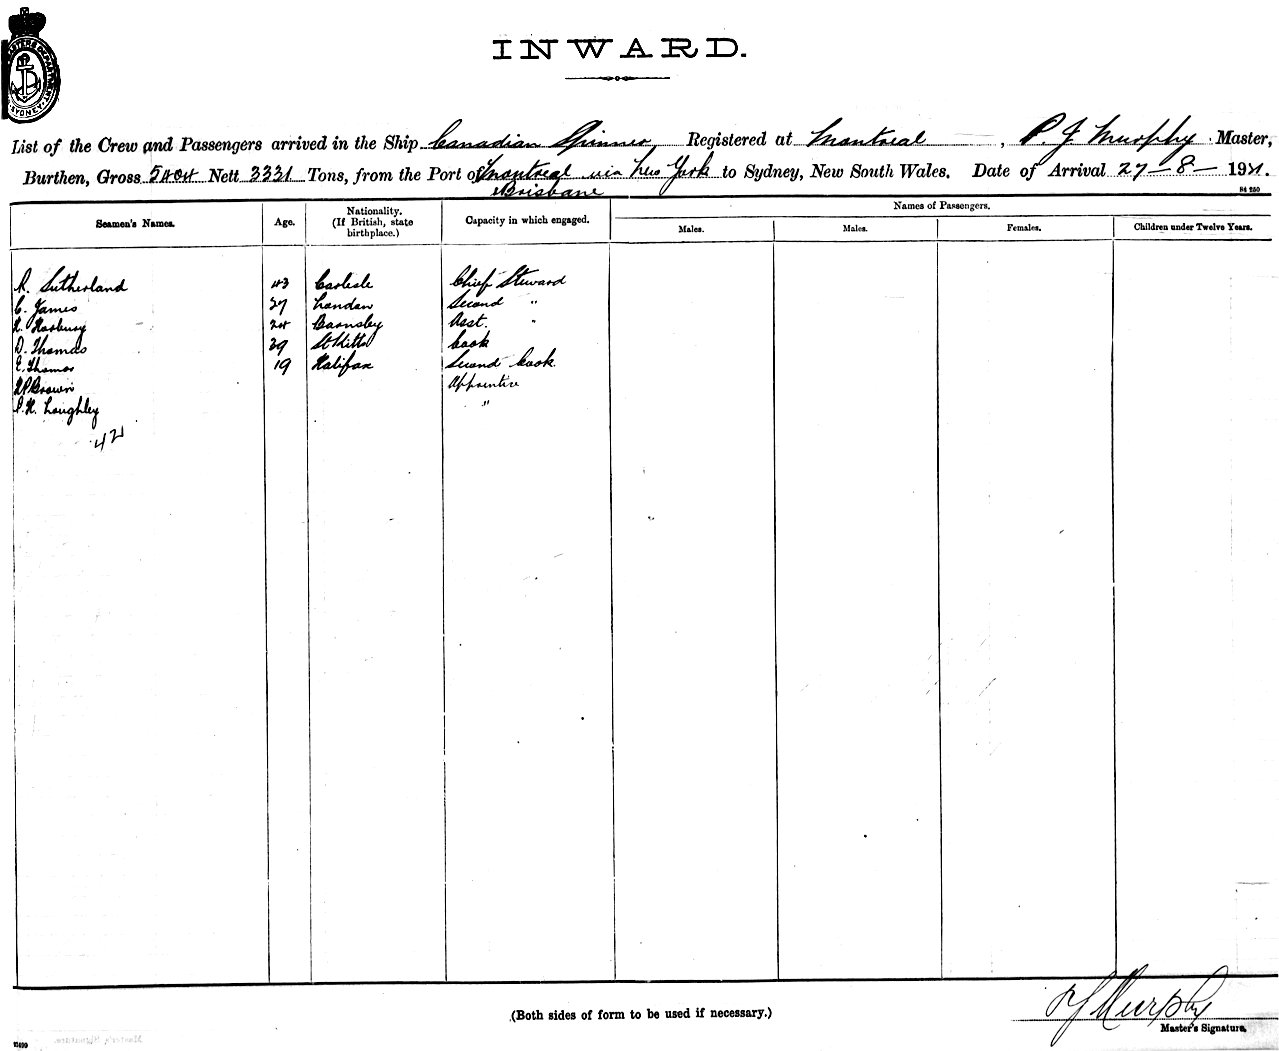 INWARD.
List of the Crew and Passengers arrived in the Ship Canadian Spinner, Registered at Montreal, P. J. Murphy Master,
Burthen, Gross 5404 Nett 3331 Tons, from the Port of Montreal via New York to Sydney, New South Wales. Date of Arrival 27-8-1921.
Brisbane
St 250
Seamen's Names. Age. Nationality. (If British, state birthplace.) Capacity in which engaged. Names of Passengers.
Males. Males. Females. Children under Twelve Years.
R. Sutherland 43 Carlisle Chief Steward
C. James 27 London Second "
Barnsley Asst. "
D. Thomas 29 St Kitts Cook
E. Thomas 19 Halifax Second Cook
Brown Apprentice
Loughley "
42
(Both sides of form to be used if necessary.)
P J Murphy
Master's Signature.